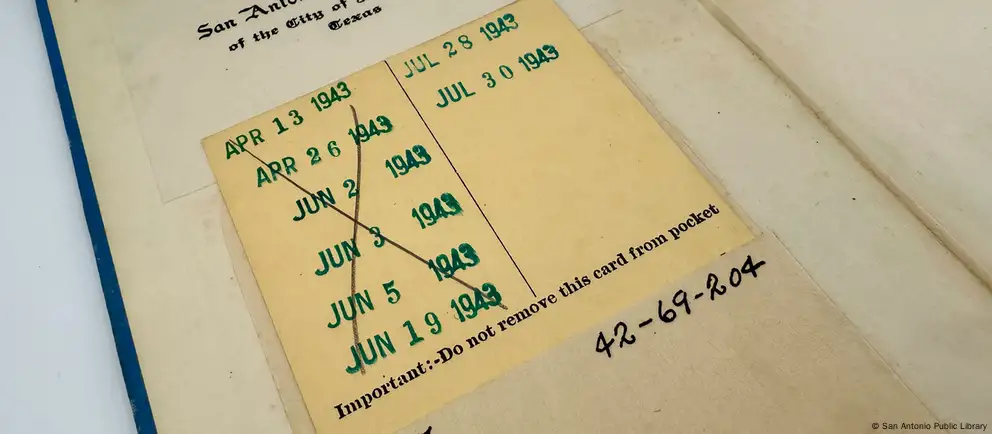 San Anton
of the City of
Texas
APR 13 1943
APR 26 1943
JUN 2 1943
JUN 3 1943
JUN 5 1943
JUN 19 1943
JUL 28 1943
JUL 30 1943
Important:-Do not remove this card from pocket
42-69-204
© San Antonio Public Library